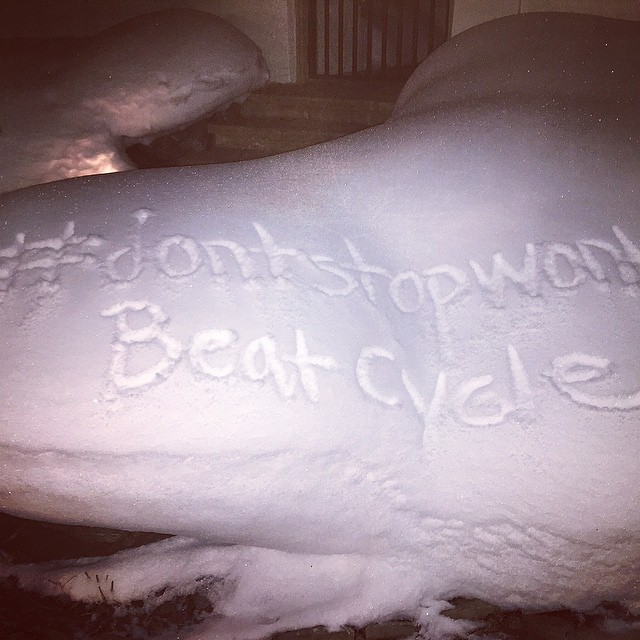 #dontstopwont
Beat Cycle